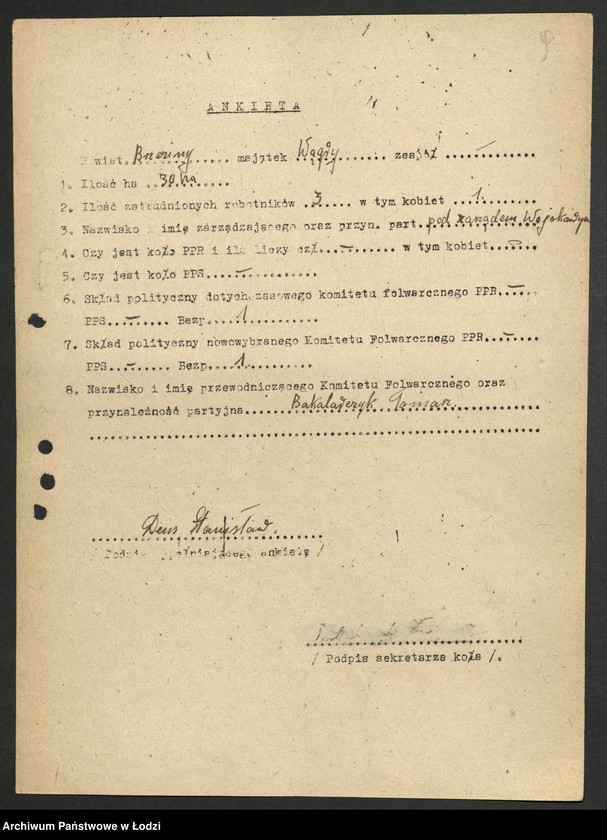 9
A N K I E T A
Powiat Brzeziny majątek Wągry zespół –
1. Ilość ha 30 ha
2. Ilość zatrudnionych robotników 3 w tym kobiet 1
3. Nazwisko i imię zarządzającego oraz przyn. part. pod zarządem Wojskowym
4. Czy jest koło PPR i ile liczy czł. – w tym kobiet –
5. Czy jest koło PPS –
6. Skład polityczny dotychczasowego komitetu folwarcznego PPR –
PPS – Bezp. 1
7. Skład polityczny nowowybranego Komitetu Folwarcznego PPR –
PPS – Bezp. 1
8. Nazwisko i imię przewodniczącego Komitetu Folwarcznego oraz
przynależność partyjna Roman
Deus Stanisław
/ Podpis ankietę /
/ Podpis sekretarza koła /.
Archiwum Państwowe w Łodzi